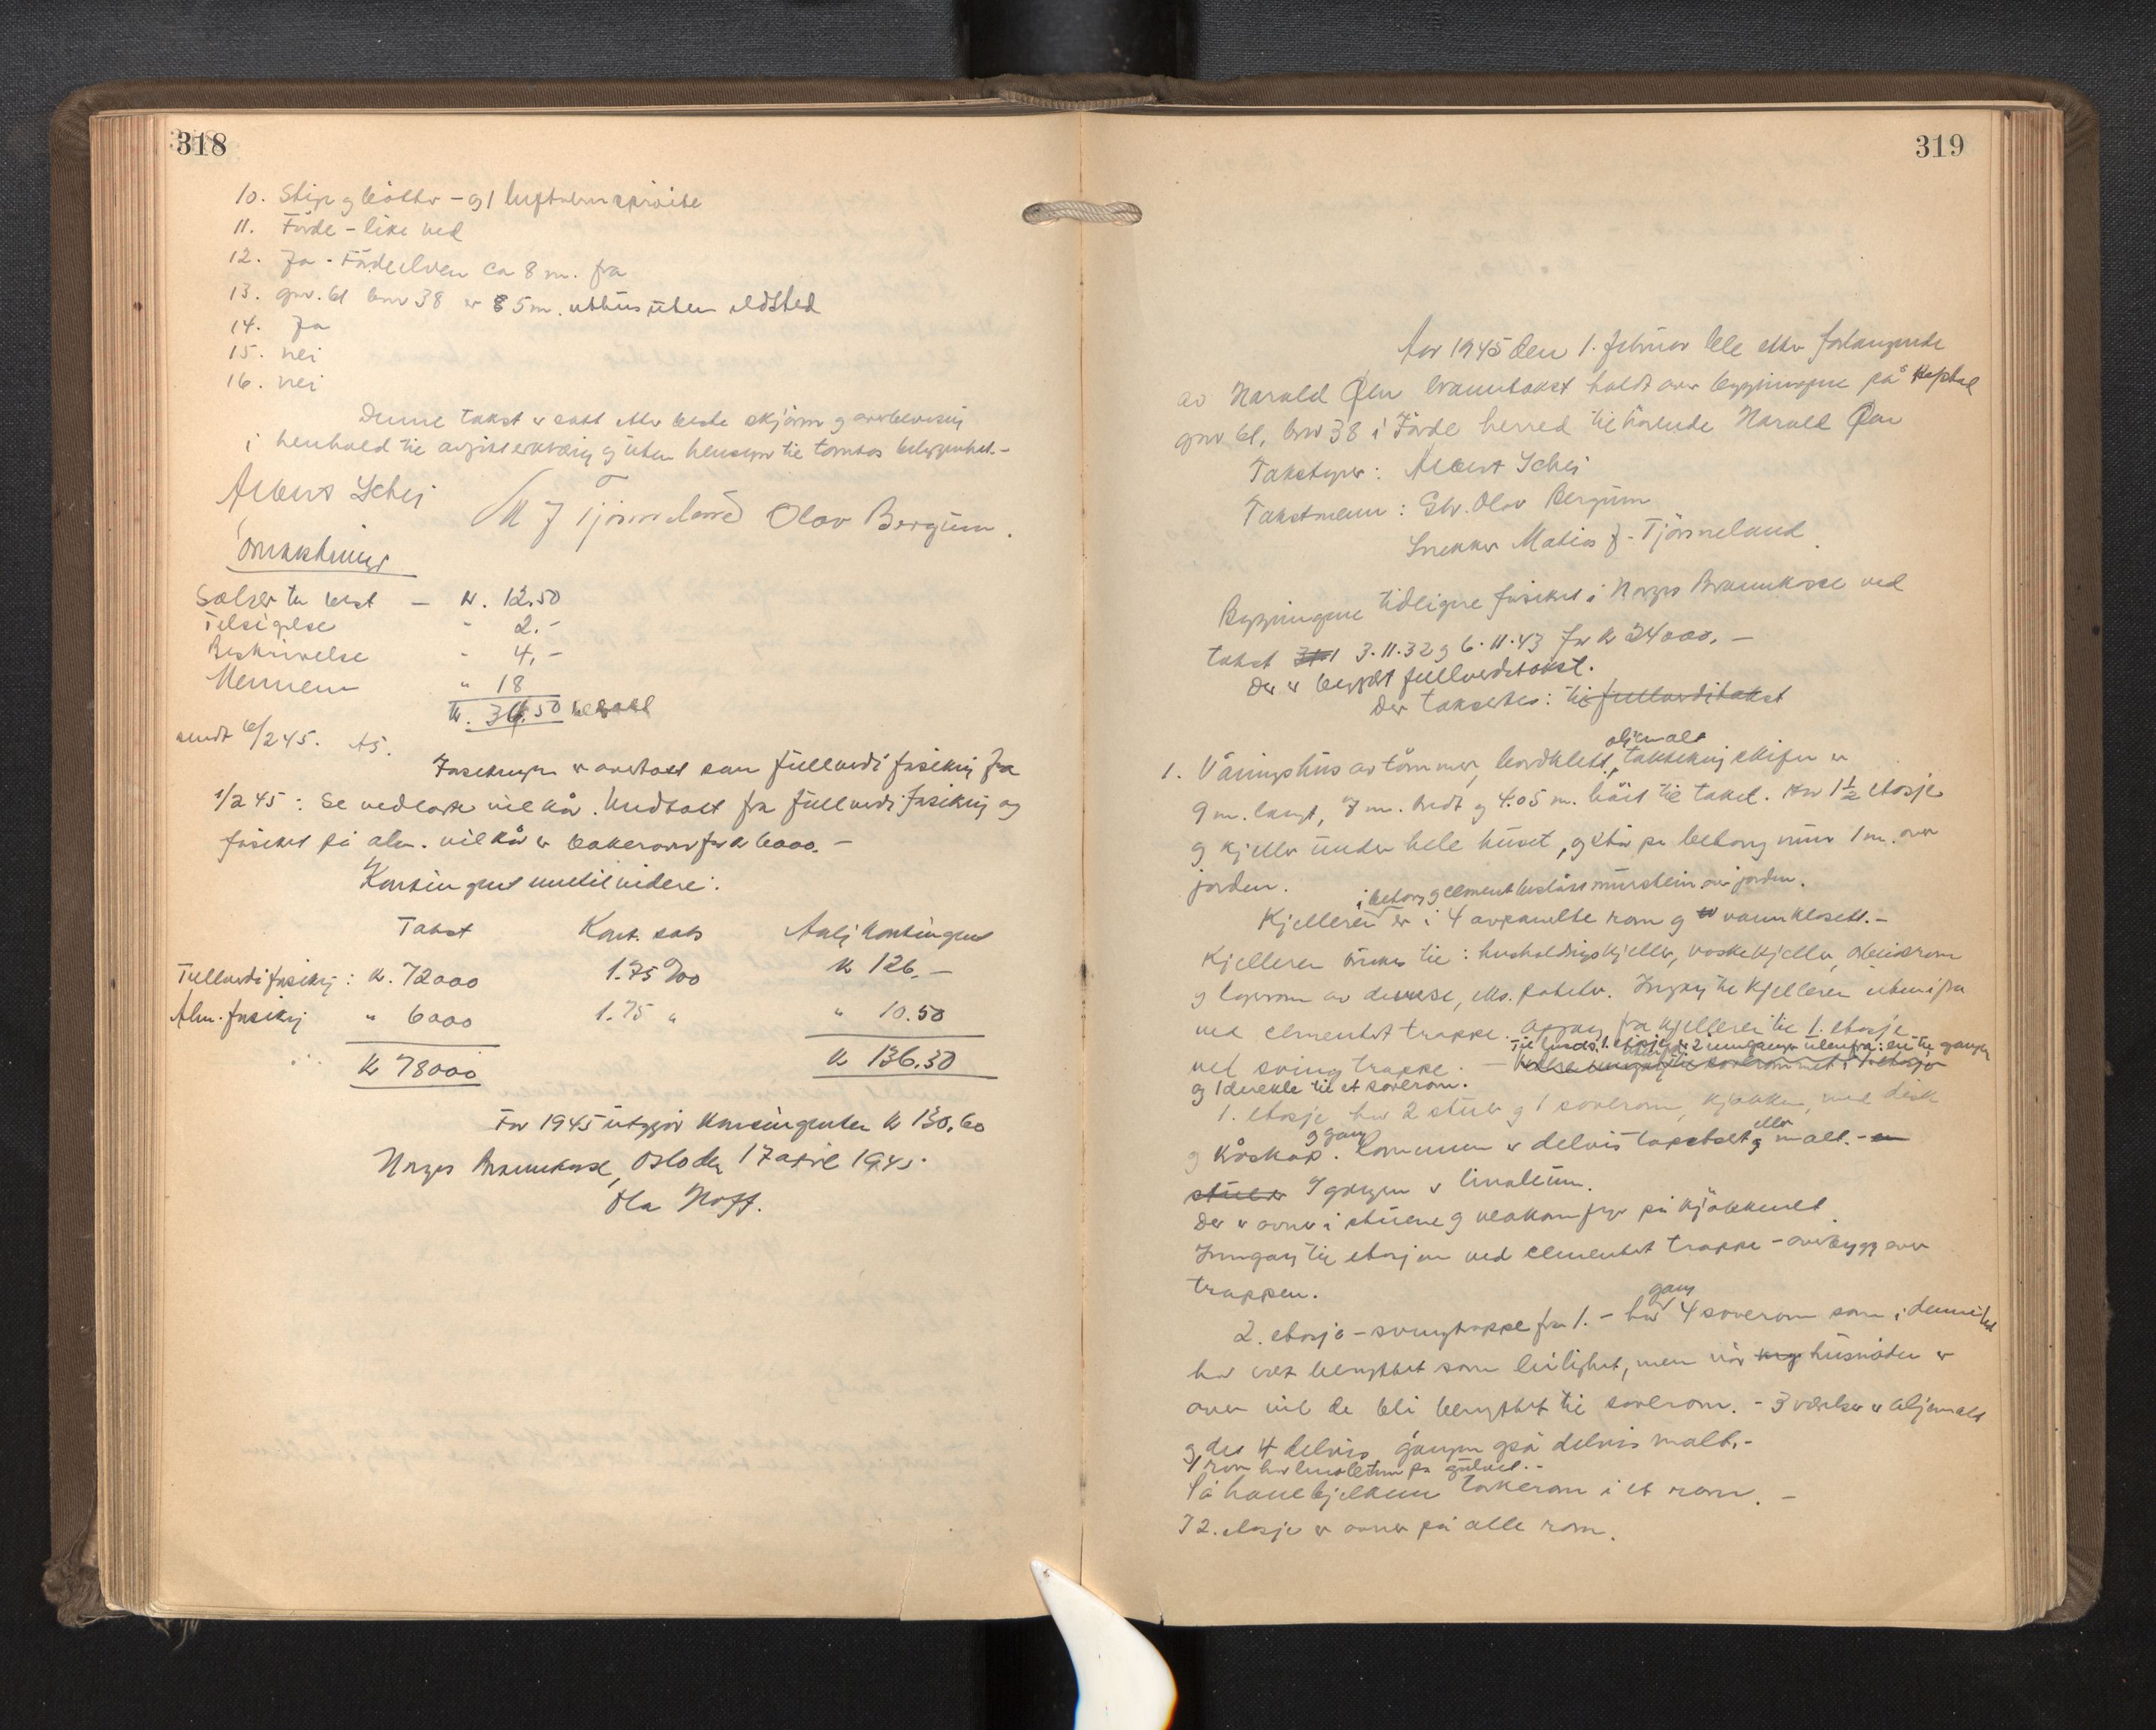 318
10. Stige og bøtter - og 1 luftvernsprøite
11. Förde - like ved
12. Ja - Fördeelven ca 8 m. fra
13. gnr. 61 bnr 38 er 8 5 m. uthus uten eldsted
14. Ja
15. nei
16. nei
Denne takst er satt etter beste skjönn og overbevisning
i henhold til avgitt erklæring og uten hensyn til tomtas beliggenhet. -
Albert Schei M J Tjönneland Olav Bergum.
Omkostninger
takst - kr. 12.50
Tilsigelse - 2.-
Beskrivelse - 4,-
Mennene " 18
kr. 36.50 betalt
sendt 6/2 45. AS.
Forsikringen er overtatt som fullverdiforsikring fra
1/2 45: Se vedlagte vilkår. Undtatt fra fullverdiforsikring og
forsikret på alm. vilkår er bakerovn for kr 6000.-
Kontingent inntil videre:
Takst Kont. sats Årlig kontingent
Fullverdiforsikring: kr. 72000 1.75 0/00 kr 126.-
Alm. forsikring " 6000 1.75 " " 10.50
kr 78000 kr 136.50
For 1945 utgjør kontingenten kr 130,60
Norges Brannkasse, Oslo den 17 april 1945.
Ola Hoff.
319
Aar 1945 den 1. februar ble etter forlangende
av Harald Øen branntakst holdt over bygningene på
gnr 61, bnr 38 i Förde herred tilhørende Harald Øen
Takstgiver: Albert Schei
Takstmenn: Olav Bergum
Snekker Matias J. Tjönneland.
Bygningene tidligere forsikret i Norges Brannkasse ved
takst 3.11.32 og 6.11.43 for kr 34000.-
Der er begjært fullverditakst.
Der taksertes: til fullverditakst
oljemalt
1. Våningshus av tömmer, bordkledt, taktekking skifer er
9 m. langt, 7 m. bredt og 4.05 m. höit til taket. Har 1 1/2 etasje
og kjeller under hele huset, og står på betong mur 1 m. over
jorden.
i betong og cement murstein over jorden.
Kjelleren er i 4 avpanelte rom og vannklosett.-
Kjelleren brukes til: husholdningskjeller, vaskekjeller, arbeidsrom
og lagerrom av diverse, eks. poteter. Inngang til kjelleren utenifra
ved cementert trappe. Oppgang fra kjelleren til 1. etasje
Til husets 1. etasje er 2 innganger utenfra: en til gangen
ved svingtrappe. -
og 1 direkte til et soverom.
1. etasje har 2 stuer og 1 soverom, kjøkken, med disk
og gang eller
og kåskap. Rommene er delvis tapetsert og malt. -
stuer I gangen er linoleum.
Der er ovner i stuene og på kjøkkenet.
Inngang til etasjen ved cementert trappe - overbygg over
trappen.
gang
2. etasje - svingtrappe fra 1. - har 4 soverom som i denne tid
har vært benyttet som leilighet, men når husnöden er
over vil de bli benyttet til soverom. - 3 værelser er oljemalt
og det 4 delvis, gangen også delvis malt.-
1 rom har linoleum på gulvet.-
På hanebjelkene tørkerom i et rom. -
I 2. etasje er ovner på alle rom.